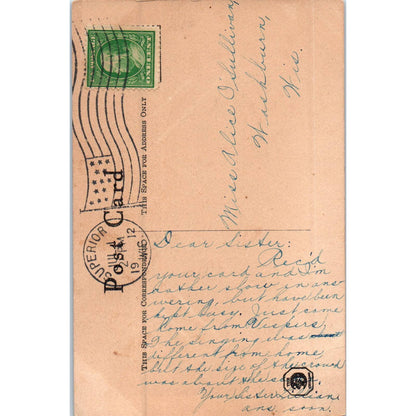 ONE CENT
Post Card
THIS SPACE FOR CORRESPONDENCE
THIS SPACE FOR ADDRESS ONLY
SUPERIOR
WIS.
JUL
12
PM
19
Miss Alice O'Sullivan,
Washburn,
Wis.
Dear Sister:
Rec'd
your card and I'm
rather slow in ans-
wering, but have been
kept busy. Just came
home from Vespers.
The singing was
different from home,
but the size of the crowd
was about the same.
Your sister Lillian
ans. soon.